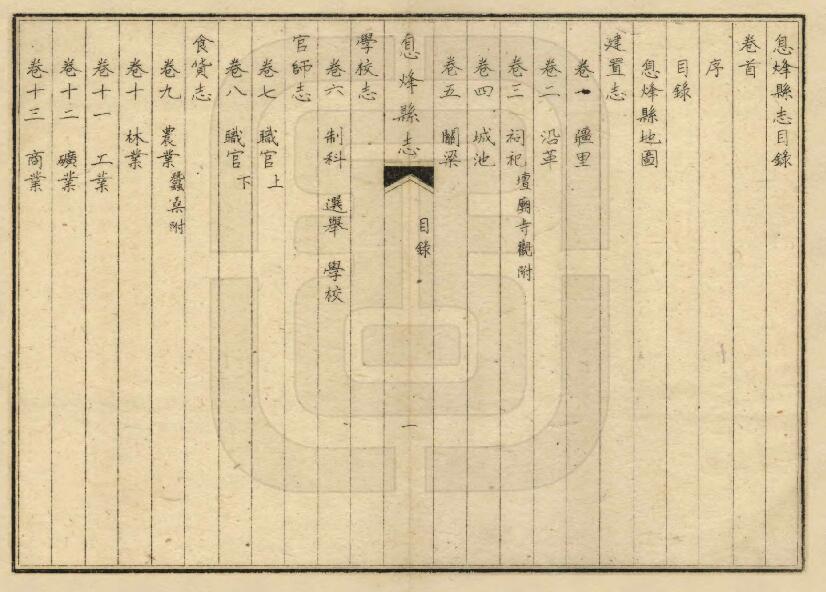 息烽縣志目錄
卷首
序
目錄
息烽縣地圖
建置志
卷一 疆里
卷二 沿革
卷三 祠祀 壇廟寺觀附
卷四 城池
卷五 關梁
息烽縣志 目錄 一
學校志
卷六 制科 選舉 學校
官師志
卷七 職官上
卷八 職官下
食貨志
卷九 農業 蠶桑附
卷十 林業
卷十一 工業
卷十二 礦業
卷十三 商業